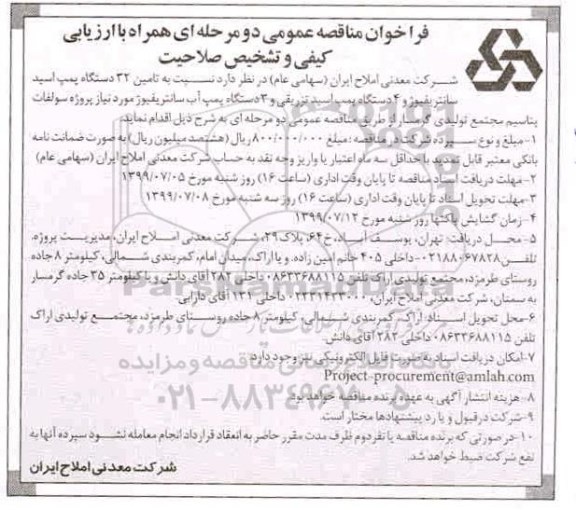 فراخوان مناقصه عمومی دو مرحله ای همراه با ارزیابی
کیفی و تشخیص صلاحیت
شرکت معدنی املاح ایران (سهامی عام) در نظر دارد نسبت به تامین ۳۲ دستگاه پمپ اسید
سانتریفیوژ و ۴ دستگاه پمپ اسید تزریقی و ۳ دستگاه پمپ آب سانتریفیوژ مورد نیاز پروژه سولفات
پتاسیم مجتمع تولیدی گرمسار از طریق مناقصه عمومی دو مرحله ای به شرح ذیل اقدام نماید.
۱-مبلغ و نوع سپرده شرکت در مناقصه: مبلغ ۸۰۰/۰۰۰/۰۰۰ ریال (هشتصد میلیون ریال) به صورت ضمانت نامه
بانکی معتبر قابل تمدید با حداقل سه ماه اعتبار یا واریز وجه نقد به حساب شرکت معدنی املاح ایران (سهامی عام)
۲-مهلت دریافت اسناد مناقصه تا پایان وقت اداری (ساعت ۱۶) روز شنبه مورخ ۱۳۹۹/۰۷/۰۵
۳-مهلت تحویل اسناد تا پایان وقت اداری (ساعت ۱۶) روز سه شنبه مورخ ۱۳۹۹/۰۷/۰۸
۴-زمان گشایش پاکتها روز شنبه مورخ ۱۳۹۹/۰۷/۱۲
۵-محل دریافت: تهران، یوسف آباد، خ ۶۴، پلاک ۲۹، شرکت معدنی املاح ایران، مدیریت پروژه.
تلفن: ۸۸۰۶۷۸۲۸-۰۲۱ داخلی ۴۰۵ خانم امین زاده. و یا اراک، میدان امام، کمربندی شمالی، کیلومتر ۸ جاده
روستای طرمزد، مجتمع تولیدی اراک تلفن ۰۸۶۳۳۶۸۸۱۱۵ داخلی ۲۸۲ آقای دانش و یا کیلومتر ۳۵ جاده گرمسار
به سمنان، شرکت معدنی املاح ایران، ۰۲۳۳۱۴۲۳۰۰۰ داخلی ۱۳۱ آقای دارابی.
۶-محل تحویل اسناد: اراک، کمربندی شمالی، کیلومتر ۸ جاده روستای طرمزد، مجتمع تولیدی اراک
تلفن ۰۸۶۳۳۶۸۸۱۱۵ داخلی ۲۸۲ آقای دانش.
۷-امکان دریافت اسناد به صورت فایل الکترونیکی نیز وجود دارد.
Project-procurement@amlah.com
۸-هزینه انتشار آگهی به عهده برنده مناقصه خواهد بود.
۹-شرکت در قبول و یا رد پیشنهادها مختار است.
۱۰-در صورتی که برنده مناقصه یا نفر دوم ظرف مدت مقرر حاضر به انعقاد قرارداد انجام معامله نشود سپرده آنها به
نفع شرکت ضبط خواهد شد.
شرکت معدنی املاح ایران